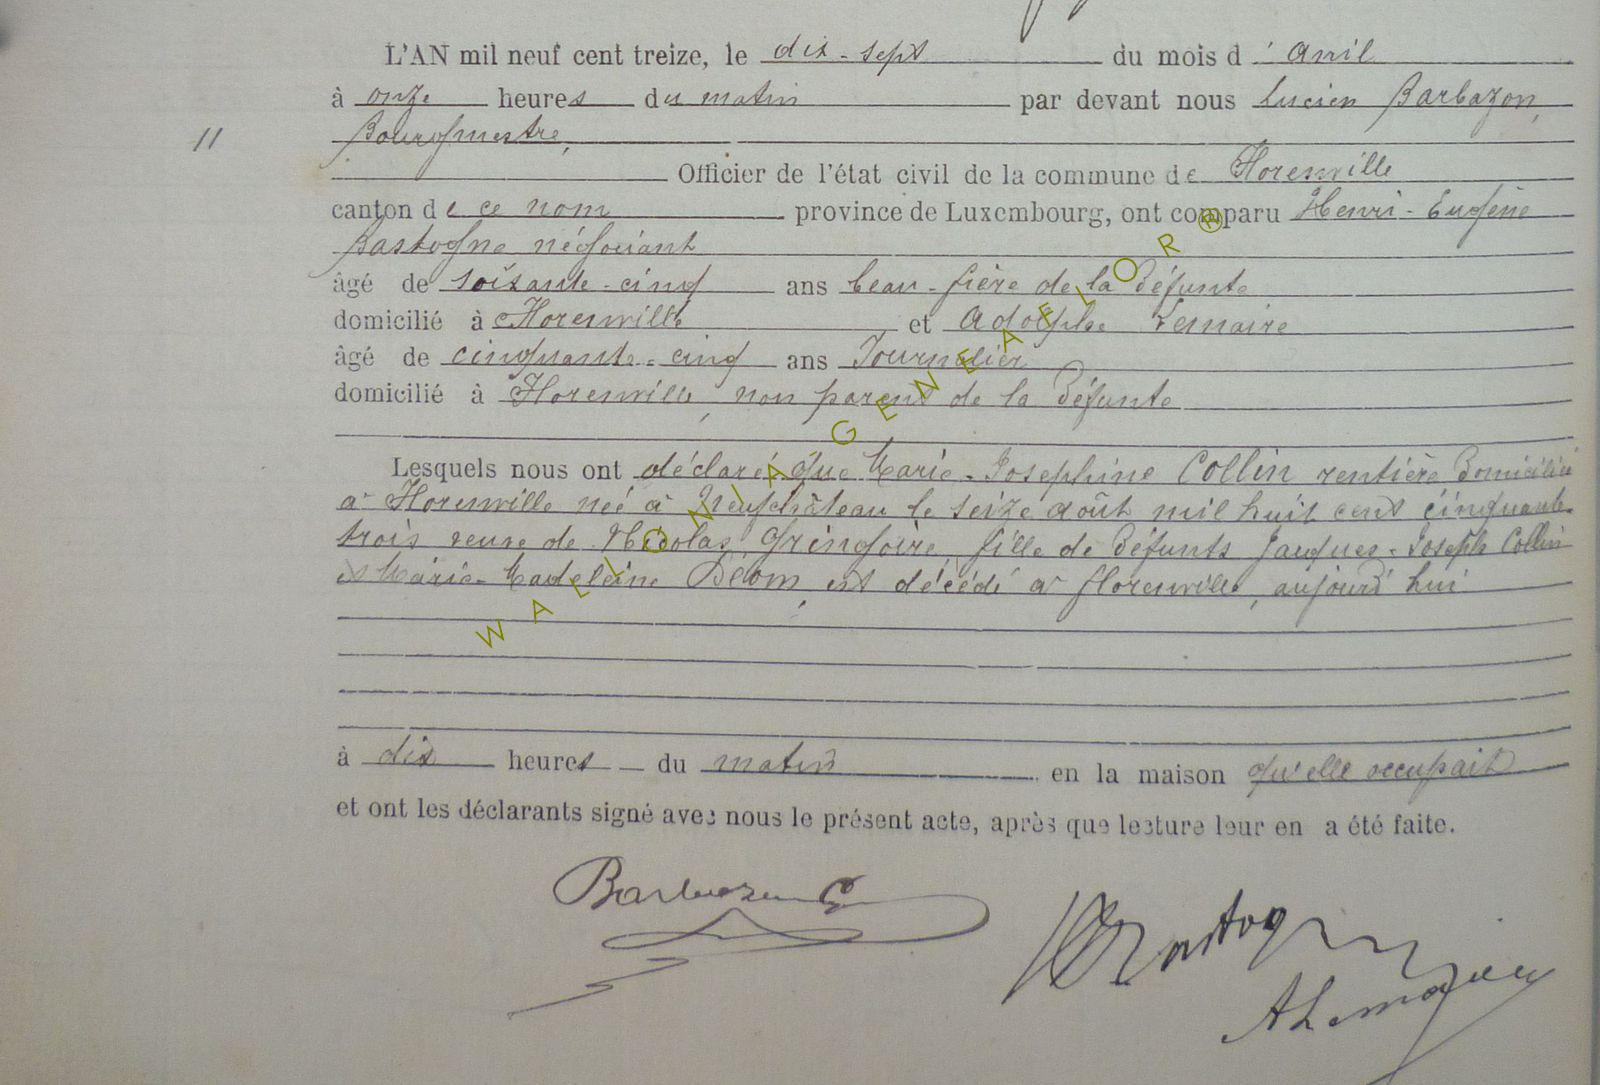 L'AN mil neuf cent treize, le dix-sept du mois d' avril
à onze heures du matin par devant nous Lucien Barbazon,
11
Bourgmestre,
Officier de l'état civil de la commune de Florenville
canton de ce nom province de Luxembourg, ont comparu Henri-Eugène
Bastogne négociant
âgé de soixante-cinq ans beau-frère de la défunte
domicilié à Florenville et Adolphe Lemaire
âgé de cinquante-cinq ans Journalier
domicilié à Florenville, non parent de la défunte
Lesquels nous ont déclaré que Marie-Josephine Collin rentière domiciliée
à Florenville née à Neufchâteau le seize août mil huit cent cinquante-
trois veuve de Nicolas Gringoire, fille de défunts Jacques-Joseph Collin
et Marie-Madeleine Déom, est décédé à florenville, aujourd'hui
à dix heures du matin en la maison qu'elle occupait
et ont les déclarants signé avec nous le présent acte, après que lecture leur en a été faite.
Barbazon
HBastogne
ALemaire
WALLONIA GENEAFLOR®